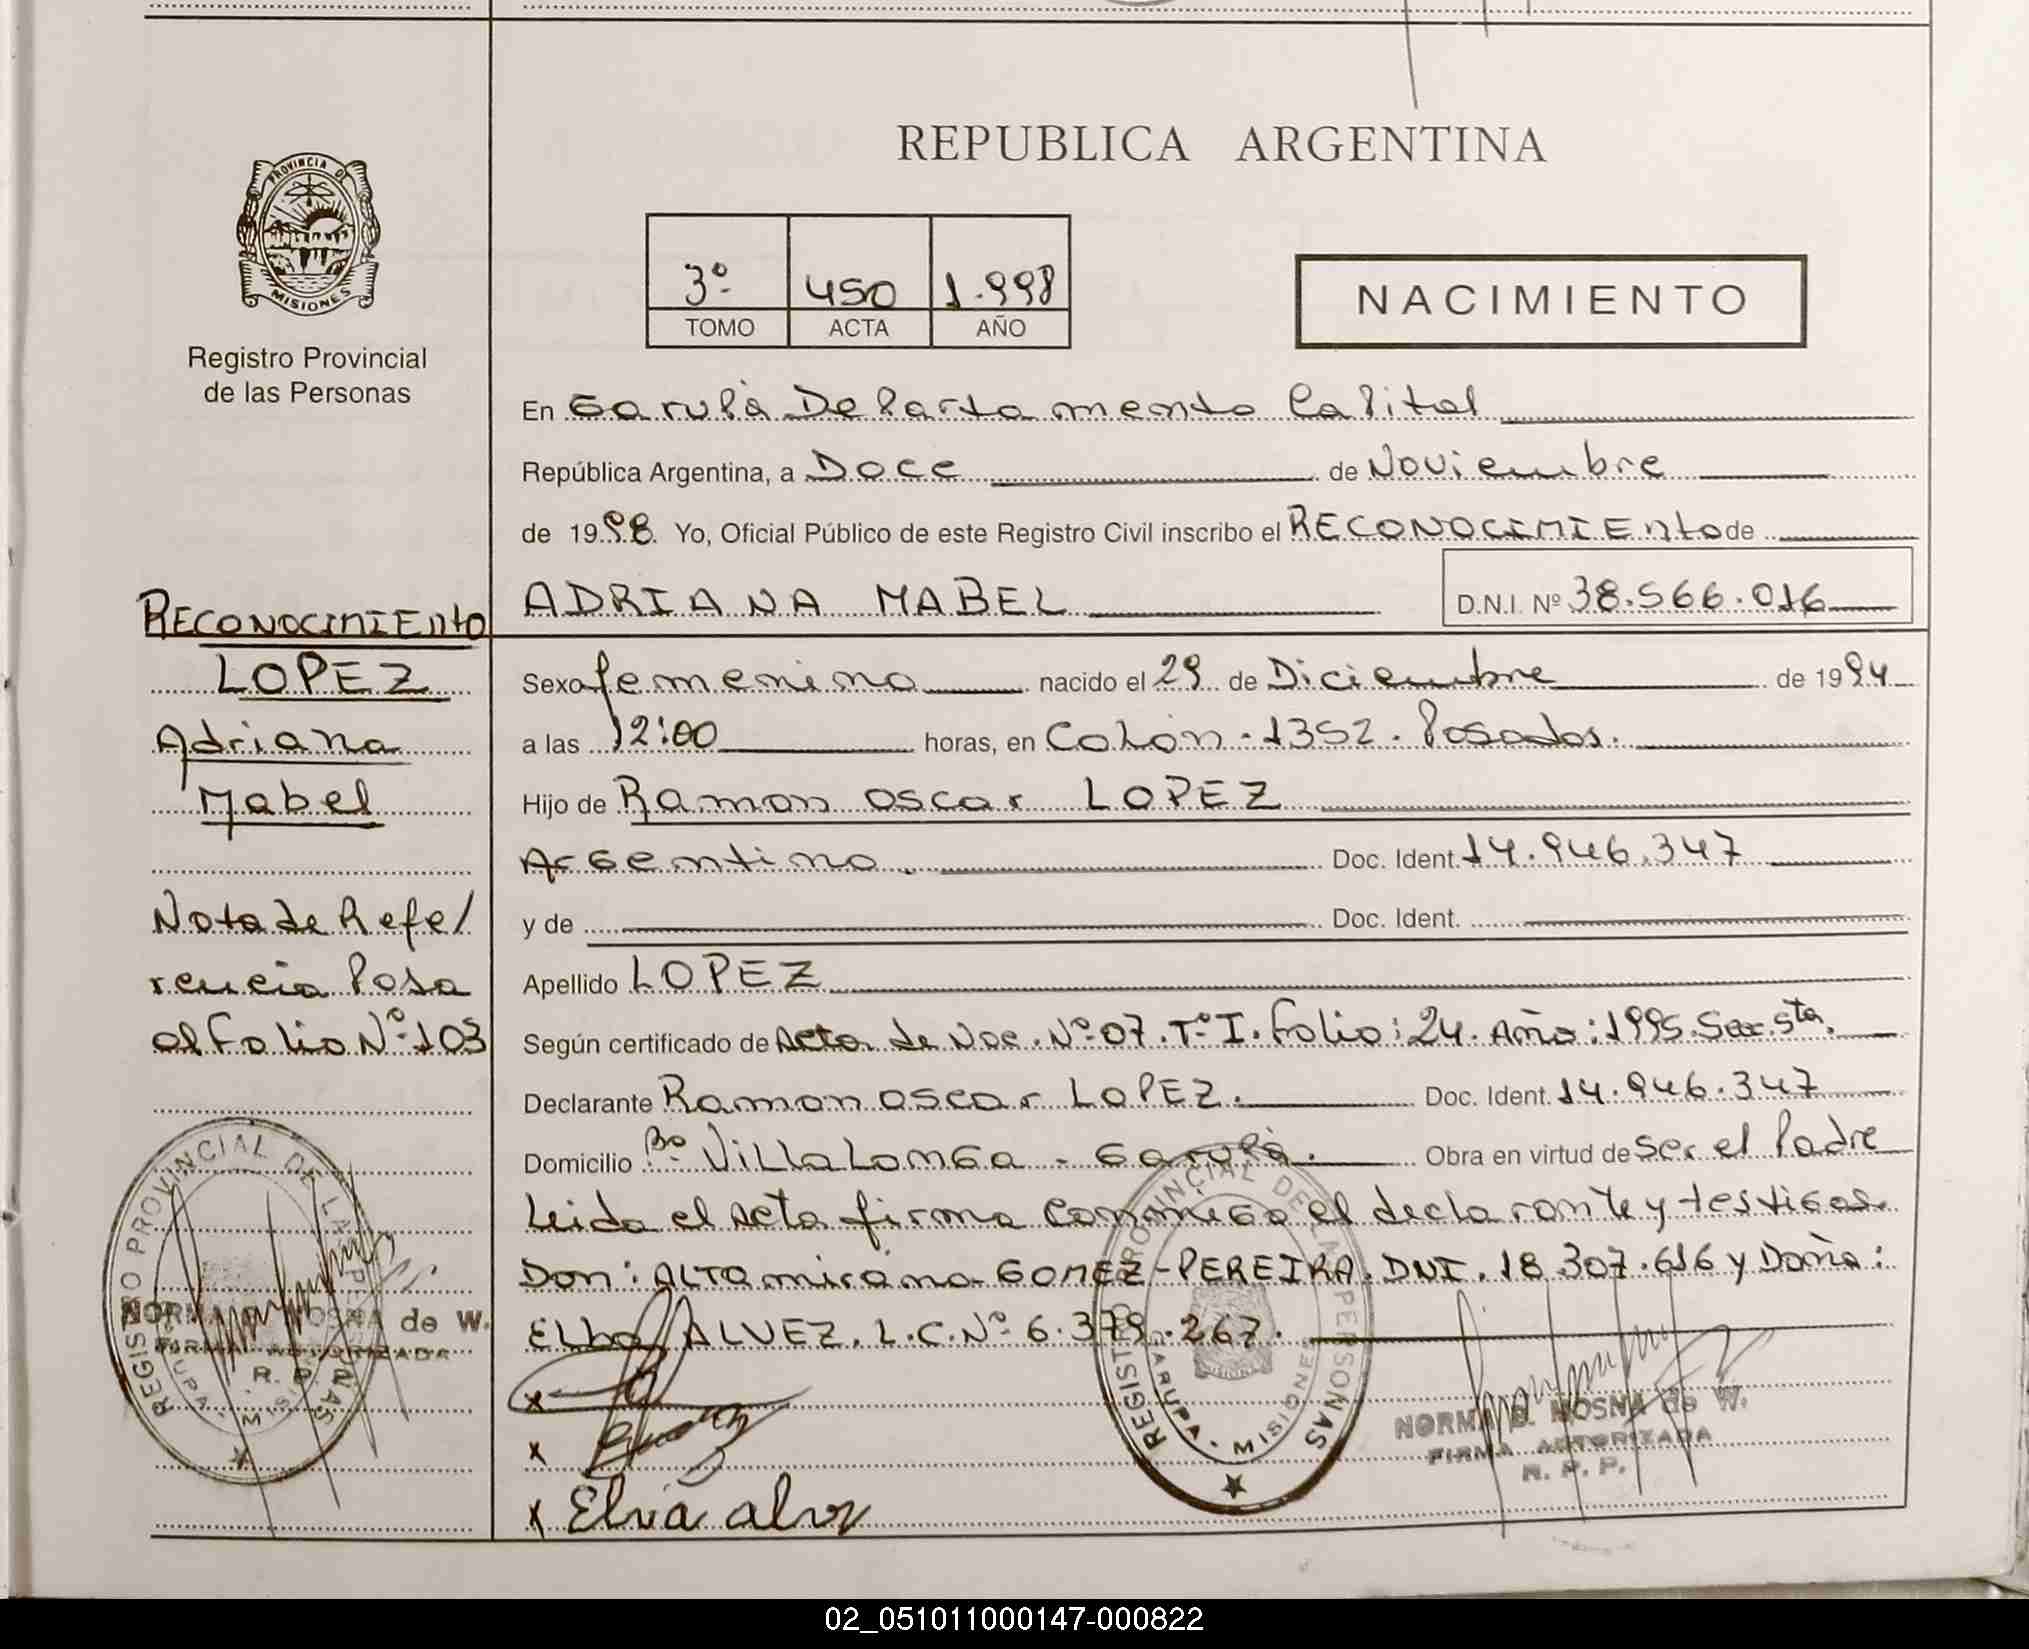 REPUBLICA ARGENTINA
PROVINCIA DE
MISIONES
Registro Provincial
de las Personas
3º 450 1.998
TOMO ACTA AÑO
NACIMIENTO
En Garupá Departamento Capital
República Argentina, a Doce de Noviembre
de 1998. Yo, Oficial Público de este Registro Civil inscribo el RECONOCIMIENto de
ADRIANA MABEL D.N.I. Nº 38.566.016
RECONOCIMIENto
LOPEZ
Adriana
Mabel
Nota de Refe/
rencia Pasa
al Folio Nº 103
Sexo femenino nacido el 29 de Diciembre de 1994
a las 12:00 horas, en Colón - 1352. Posadas.
Hijo de Ramon Oscar LOPEZ
Argentino. Doc. Ident. 14.946.347
y de Doc. Ident.
Apellido LOPEZ
Según certificado de Acta de Nac. Nº 07. Tº I. Folio: 24. Año: 1995. Secc. 5ta.
Declarante Ramon Oscar LOPEZ. Doc. Ident. 14.946.347
Domicilio Bº Villalonga - Garupá. Obra en virtud de ser el Padre
Leida el Acta firma conmigo el declarante y testigos.
Don: ALTamirano GOMEZ-PEREIRA. DNI. 18.307.616 y Doña:
ELba ALVEZ. L.C. Nº 6.379.267.
x
x
x Elva alvz
REGISTRO PROVINCIAL DE LAS PERSONAS
GARUPA - MISIONES
NORMA B. MOSNA de W.
FIRMA AUTORIZADA
R. P. P.
REGISTRO PROVINCIAL DE LAS PERSONAS
GARUPA - MISIONES
NORMA B. MOSNA de W.
FIRMA AUTORIZADA
R. P. P.
02_051011000147-000822